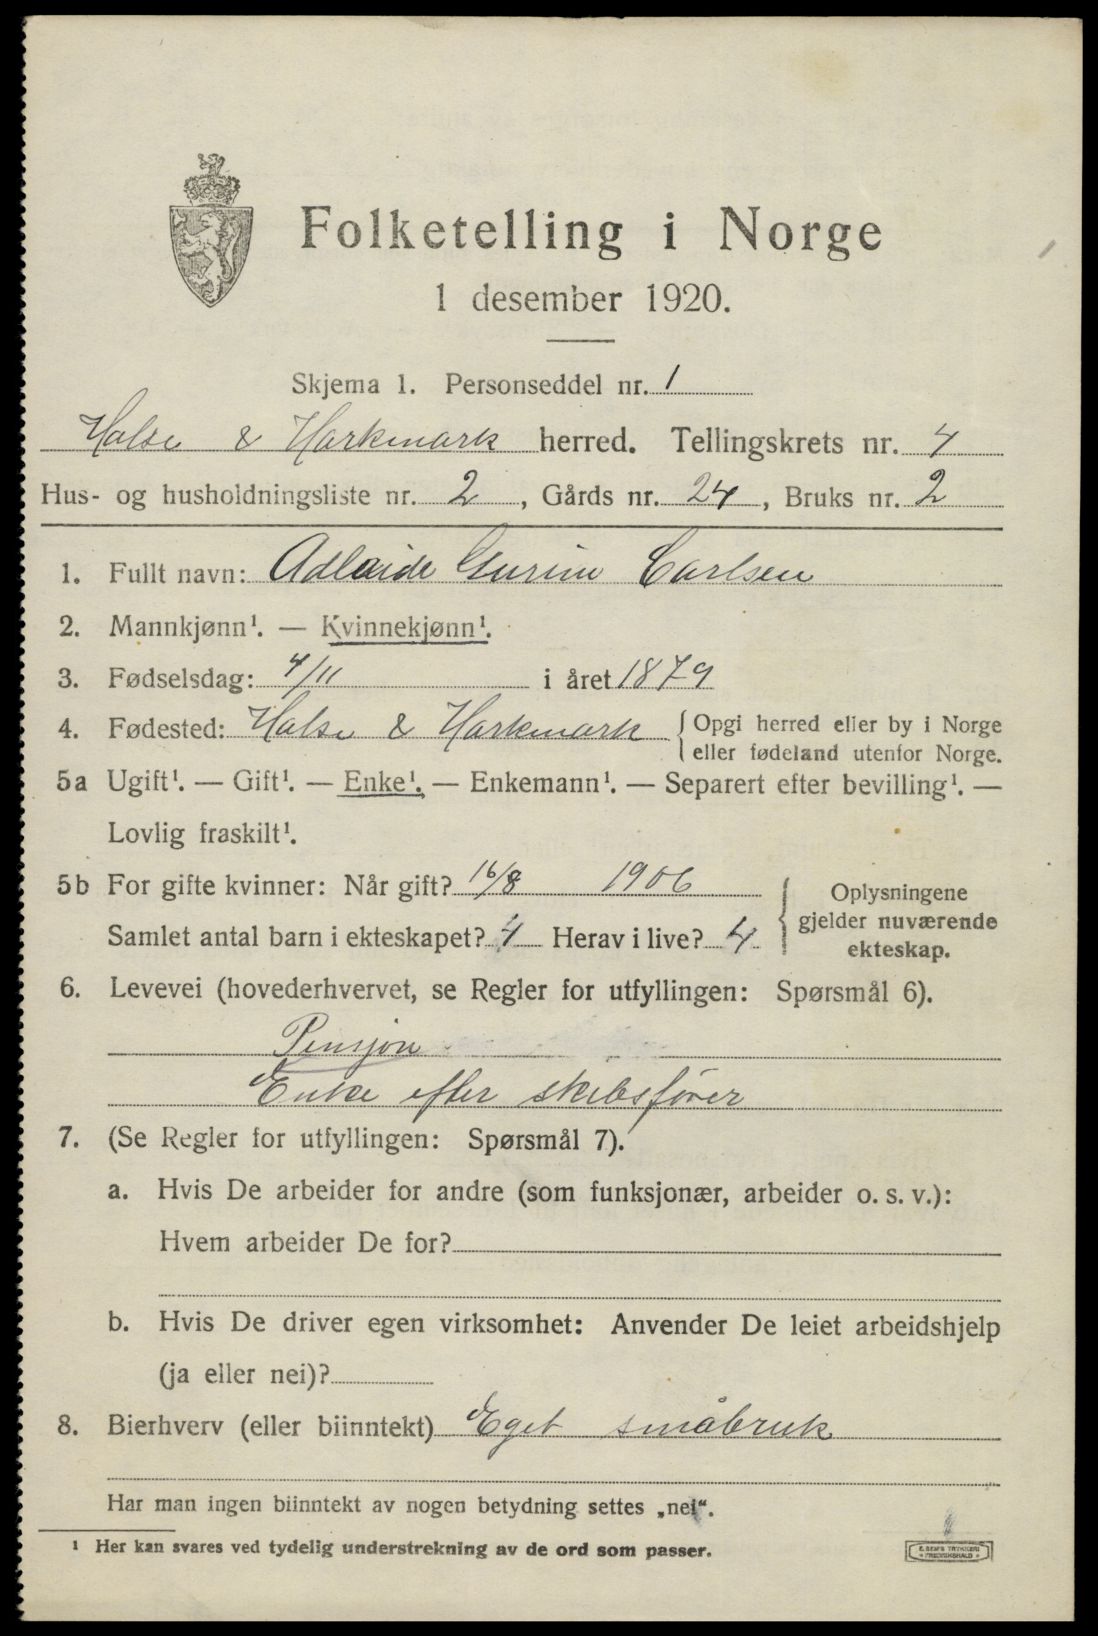 Folketelling i Norge
1 desember 1920.
Skjema 1. Personseddel nr. 1
Halse & Harkmark herred. Tellingskrets nr. 4
Hus- og husholdningsliste nr. 2, Gårds nr. 24, Bruks nr. 2
1. Fullt navn: Adlaide Gurine Carlsen
2. Mannkjønn¹. — Kvinnekjønn¹.
3. Fødselsdag: 4/11 i året 1879
4. Fødested: Halse & Harkmark {Opgi herred eller by i Norge
eller fødeland utenfor Norge.
5a Ugift¹. — Gift¹. — Enke¹. — Enkemann¹. — Separert efter bevilling¹. —
Lovlig fraskilt¹.
5b For gifte kvinner: Når gift? 16/8 1906
Samlet antal barn i ekteskapet? 4 Herav i live? 4
Oplysningene
gjelder nuværende
ekteskap.
6. Levevei (hovederhvervet, se Regler for utfyllingen: Spørsmål 6).
Pensjon
Enke efter skibsfører
7. (Se Regler for utfyllingen: Spørsmål 7).
a. Hvis De arbeider for andre (som funksjonær, arbeider o. s. v.):
Hvem arbeider De for?
b. Hvis De driver egen virksomhet: Anvender De leiet arbeidshjelp
(ja eller nei)?
8. Bierhverv (eller biinntekt) Eget småbruk
Har man ingen biinntekt av nogen betydning settes „nei“.
¹ Her kan svares ved tydelig understrekning av de ord som passer.
E. SEMS TRYKKERI
FREDRIKSHALD